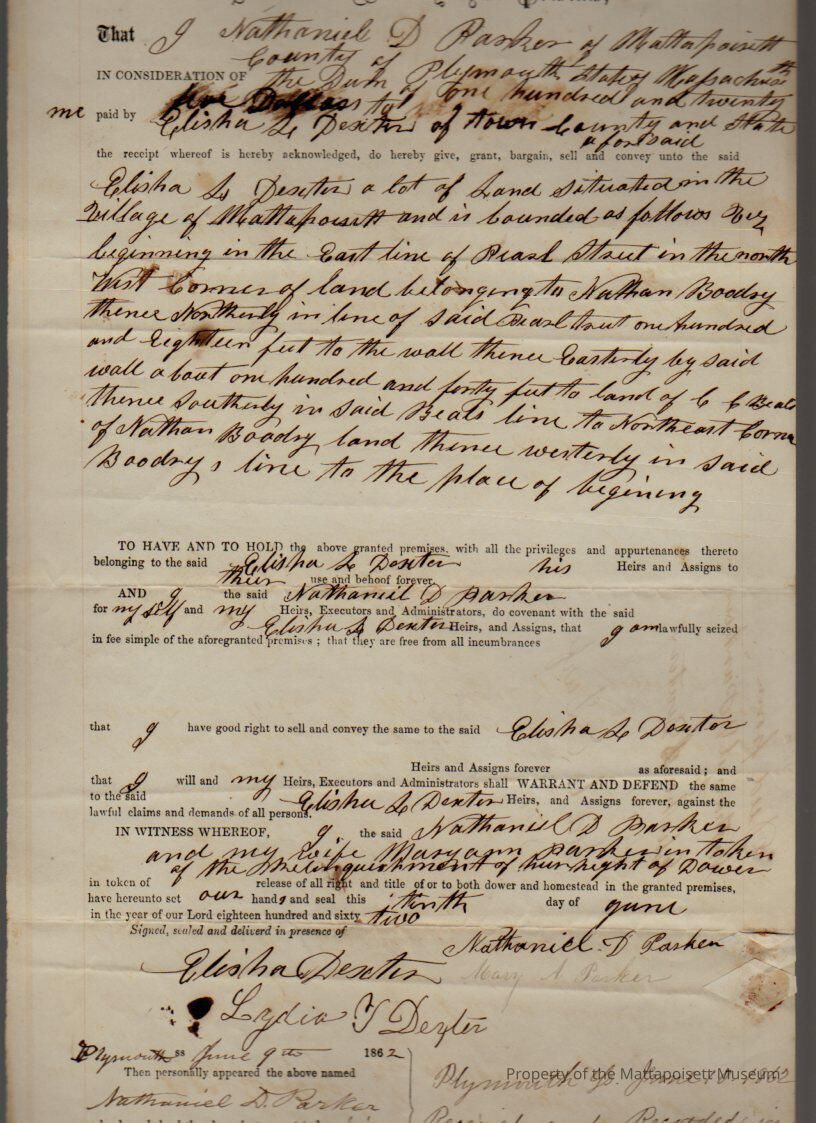 That I Nathaniel D Parker of Mattapoisett
County of Plymouth State of Massachusetts
IN CONSIDERATION OF the Sum of one hundred and twenty
five Dollars to
me paid by Elisha L Dexter of town County and State
aforesaid
the receipt whereof is hereby acknowledged, do hereby give, grant, bargain, sell and convey unto the said
Elisha L Dexter a lot of Land situated in the
Village of Mattapoisett and is bounded as follows Viz
beginning in the East line of Pearl Street in the north
West Corner of land belonging to Nathan Boodry
thence Northerly in line of said Pearl treet one hundred
and Eighteen feet to the wall thence Easterly by said
wall about one hundred and forty feet to land of C C Beals
thence Southerly in said Beals line to Northeast Corner
of Nathan Boodry land thence westerly in said
Boodry s line to the place of begining
TO HAVE AND TO HOLD the above granted premises, with all the privileges and appurtenances thereto
belonging to the said Elisha L Dexter his Heirs and Assigns to
their use and behoof forever.
AND I the said Nathaniel D Parker
for my self and my Heirs, Executors and Administrators, do covenant with the said
Elisha L Dexter Heirs, and Assigns, that I am lawfully seized
in fee simple of the aforegranted premises ; that they are free from all incumbrances
that I have good right to sell and convey the same to the said Elisha L Dexter
Heirs and Assigns forever as aforesaid ; and
that I will and my Heirs, Executors and Administrators shall WARRANT AND DEFEND the same
to the said Elisha L Dexter Heirs, and Assigns forever, against the
lawful claims and demands of all persons.
IN WITNESS WHEREOF, I the said Nathaniel D Parker
and my wife Mary ann Parker in token
of the Relinquishment of hur Right of Dower
in token of release of all right and title of or to both dower and homestead in the granted premises,
have hereunto set our hands and seal this tenth day of June
in the year of our Lord eighteen hundred and sixty two
Signed, sealed and deliverd in presence of
Nathaniel D Parker
Elisha Dexter
Mary A Parker
Lydia T Dexter
Plymouth ss June 9th 1862
Then personally appeared the above named
Nathaniel D. Parker
Plymouth ss June 1862
Received Recorded in
Property of the Mattapoisett Museum